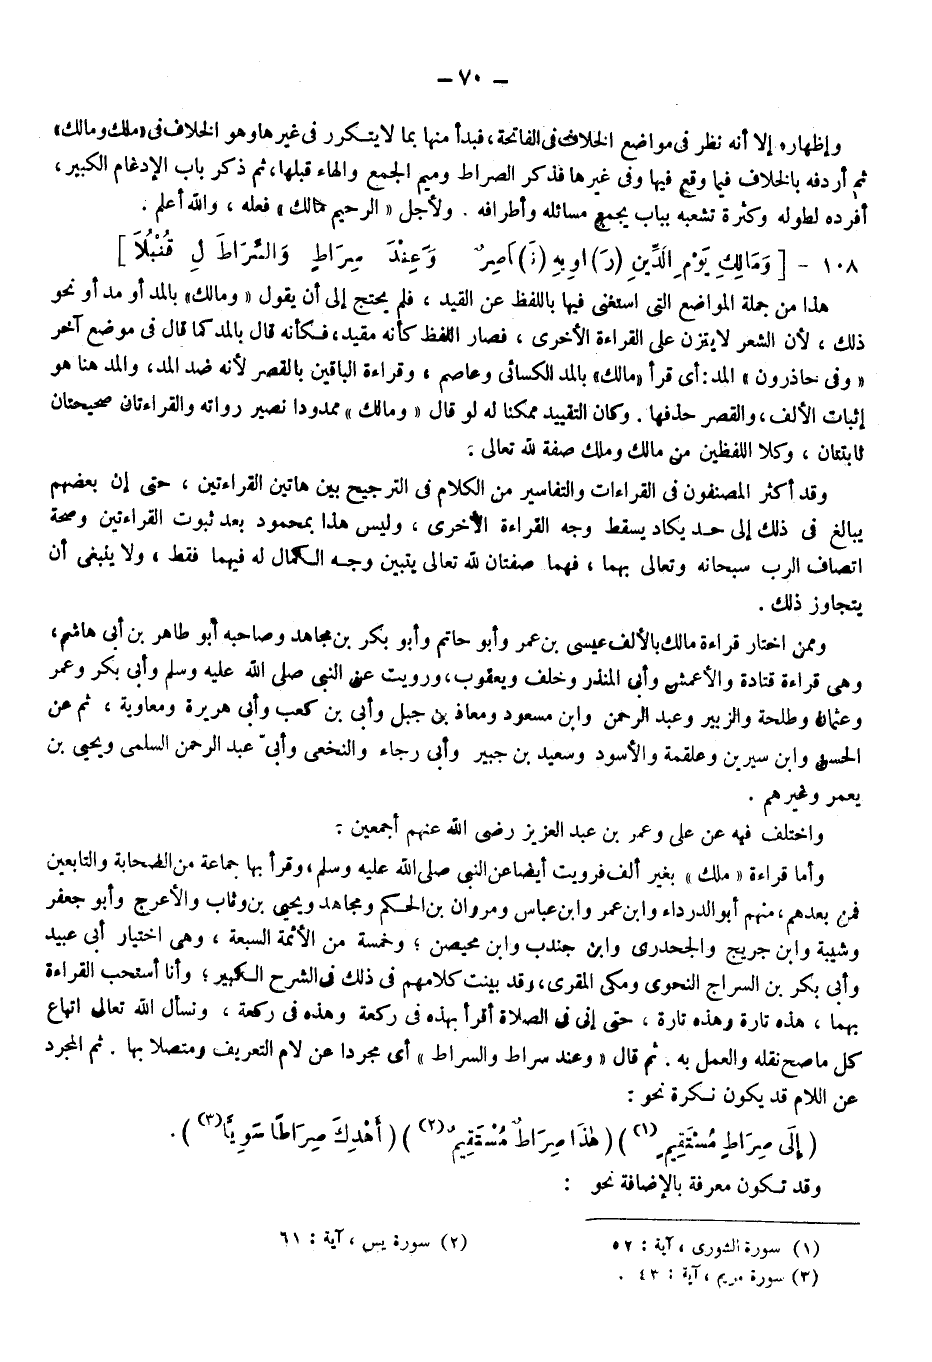 — ٧٠ —
وإظهاره إلا أنه نظر فى مواضع الخلاف فى الفاتحة، فبدأ منها بما لا يتكرر فى غيرها وهو الخلاف فى «ملك ومالك»
ثم أردفه بالخلاف فيما وقع فيها وفى غيرها فذكر الصراط وميم الجمع والهاء قبلها، ثم ذكر باب الإدغام الكبير،
أفرده لطوله وكثرة تشعبه بباب يجمع مسائله وأطرافه . ولأجل «الرحيم مالك» فعله ، والله أعلم .
١٠٨ - [ وَمَالِكِ يَوْمِ الدِّينِ (رَ)اوِيهِ (نَ)اصِرٌ وَعِنْدَ سِرَاطِ وَالسِّرَاطَ لِ قُنْبُلَا ]
هذا من جملة المواضع التى استغنى فيها باللفظ عن القيد ، فلم يحتج إلى أن يقول «ومالك» بالمد أو مد أو نحو
ذلك ، لأن الشعر لا يتزن على القراءة الأخرى ، فصار اللفظ كأنه مقيد، فكأنه قال بالمد كما قال فى موضع آخر
« وفى حاذرون » المد: أى قرأ «مالك» بالمد الكسائى وعاصم ، وقراءة الباقين بالقصر لأنه ضد المد، والمد هنا هو
إثبات الألف، والقصر حذفها . وكان التقييد ممكنا له لو قال « ومالك » ممدودا نصير رواته والقراءتان صحيحتان
ثابتتان ، وكلا اللفظين من مالك وملك صفة لله تعالى :
وقد أكثر المصنفون فى القراءات والتفاسير من الكلام فى الترجيح بين هاتين القراءتين ، حتى إن بعضهم
يبالغ فى ذلك إلى حد يكاد يسقط وجه القراءة الأخرى ، وليس هذا بمحمود بعد ثبوت القراءتين وصحة
اتصاف الرب سبحانه وتعالى بهما ، فهما صفتان لله تعالى يتبين وجه الكمال له فيهما فقط ، ولا ينبغى أن
يتجاوز ذلك .
وممن اختار قراءة مالك بالألف عيسى بن عمر وأبو حاتم وأبو بكر بن مجاهد وصاحبه أبو طاهر بن أبى هاشم،
وهى قراءة قتادة والأعمش وأبى المنذر وخلف ويعقوب، ورويت عن النبى صلى الله عليه وسلم وأبى بكر وعمر
وعثمان وطلحة والزبير وعبد الرحمن وابن مسعود ومعاذ بن جبل وأبى بن كعب وأبى هريرة ومعاوية ، ثم عن
الحسن وابن سيرين وعلقمة والأسود وسعيد بن جبير وأبى رجاء والنخعى وأبى عبد الرحمن السلمى ويحيى بن
يعمر وغيرهم .
واختلف فيه عن على وعمر بن عبد العزيز رضى الله عنهم أجمعين :
وأما قراءة « ملك » بغير ألف فرويت أيضا عن النبى صلى الله عليه وسلم، وقرأ بها جماعة من الصحابة والتابعين
فمن بعدهم، منهم أبو الدرداء وابن عمر وابن عباس ومروان بن الحكم ومجاهد ويحيى بن وثاب والأعرج وأبو جعفر
وشيبة وابن جريج والجحدرى وابن جندب وابن محيصن ؛ وخمسة من الأئمة السبعة ، وهى اختيار أبى عبيد
وأبى بكر بن السراج النحوى ومكى المقرى، وقد بينت كلامهم فى ذلك فى الشرح الكبير؛ وأنا أستحب القراءة
بهما ، هذه تارة وهذه تارة ، حتى إنى فى الصلاة أقرأ بهذه فى ركعة وهذه فى ركعة ، ونسأل الله تعالى اتباع
كل ما صح نقله والعمل به . ثم قال « وعند سراط والسراط » أى مجردا عن لام التعريف ومتصلا بها . ثم المجرد
عن اللام قد يكون نكرة نحو :
( إِلَى صِرَاطٍ مُسْتَقِيمٍ (١) ) ( هٰذَا صِرَاطٌ مُسْتَقِيمٌ (٢) ) ( أَهْدِكَ صِرَاطًا سَوِيًّا (٣) ) .
وقد تكون معرفة بالإضافة نحو :
(١) سورة الشورى ، آية : ٥٢ (٢) سورة يس ، آية : ٦١
(٣) سورة مريم ، آية : ٤٣ .